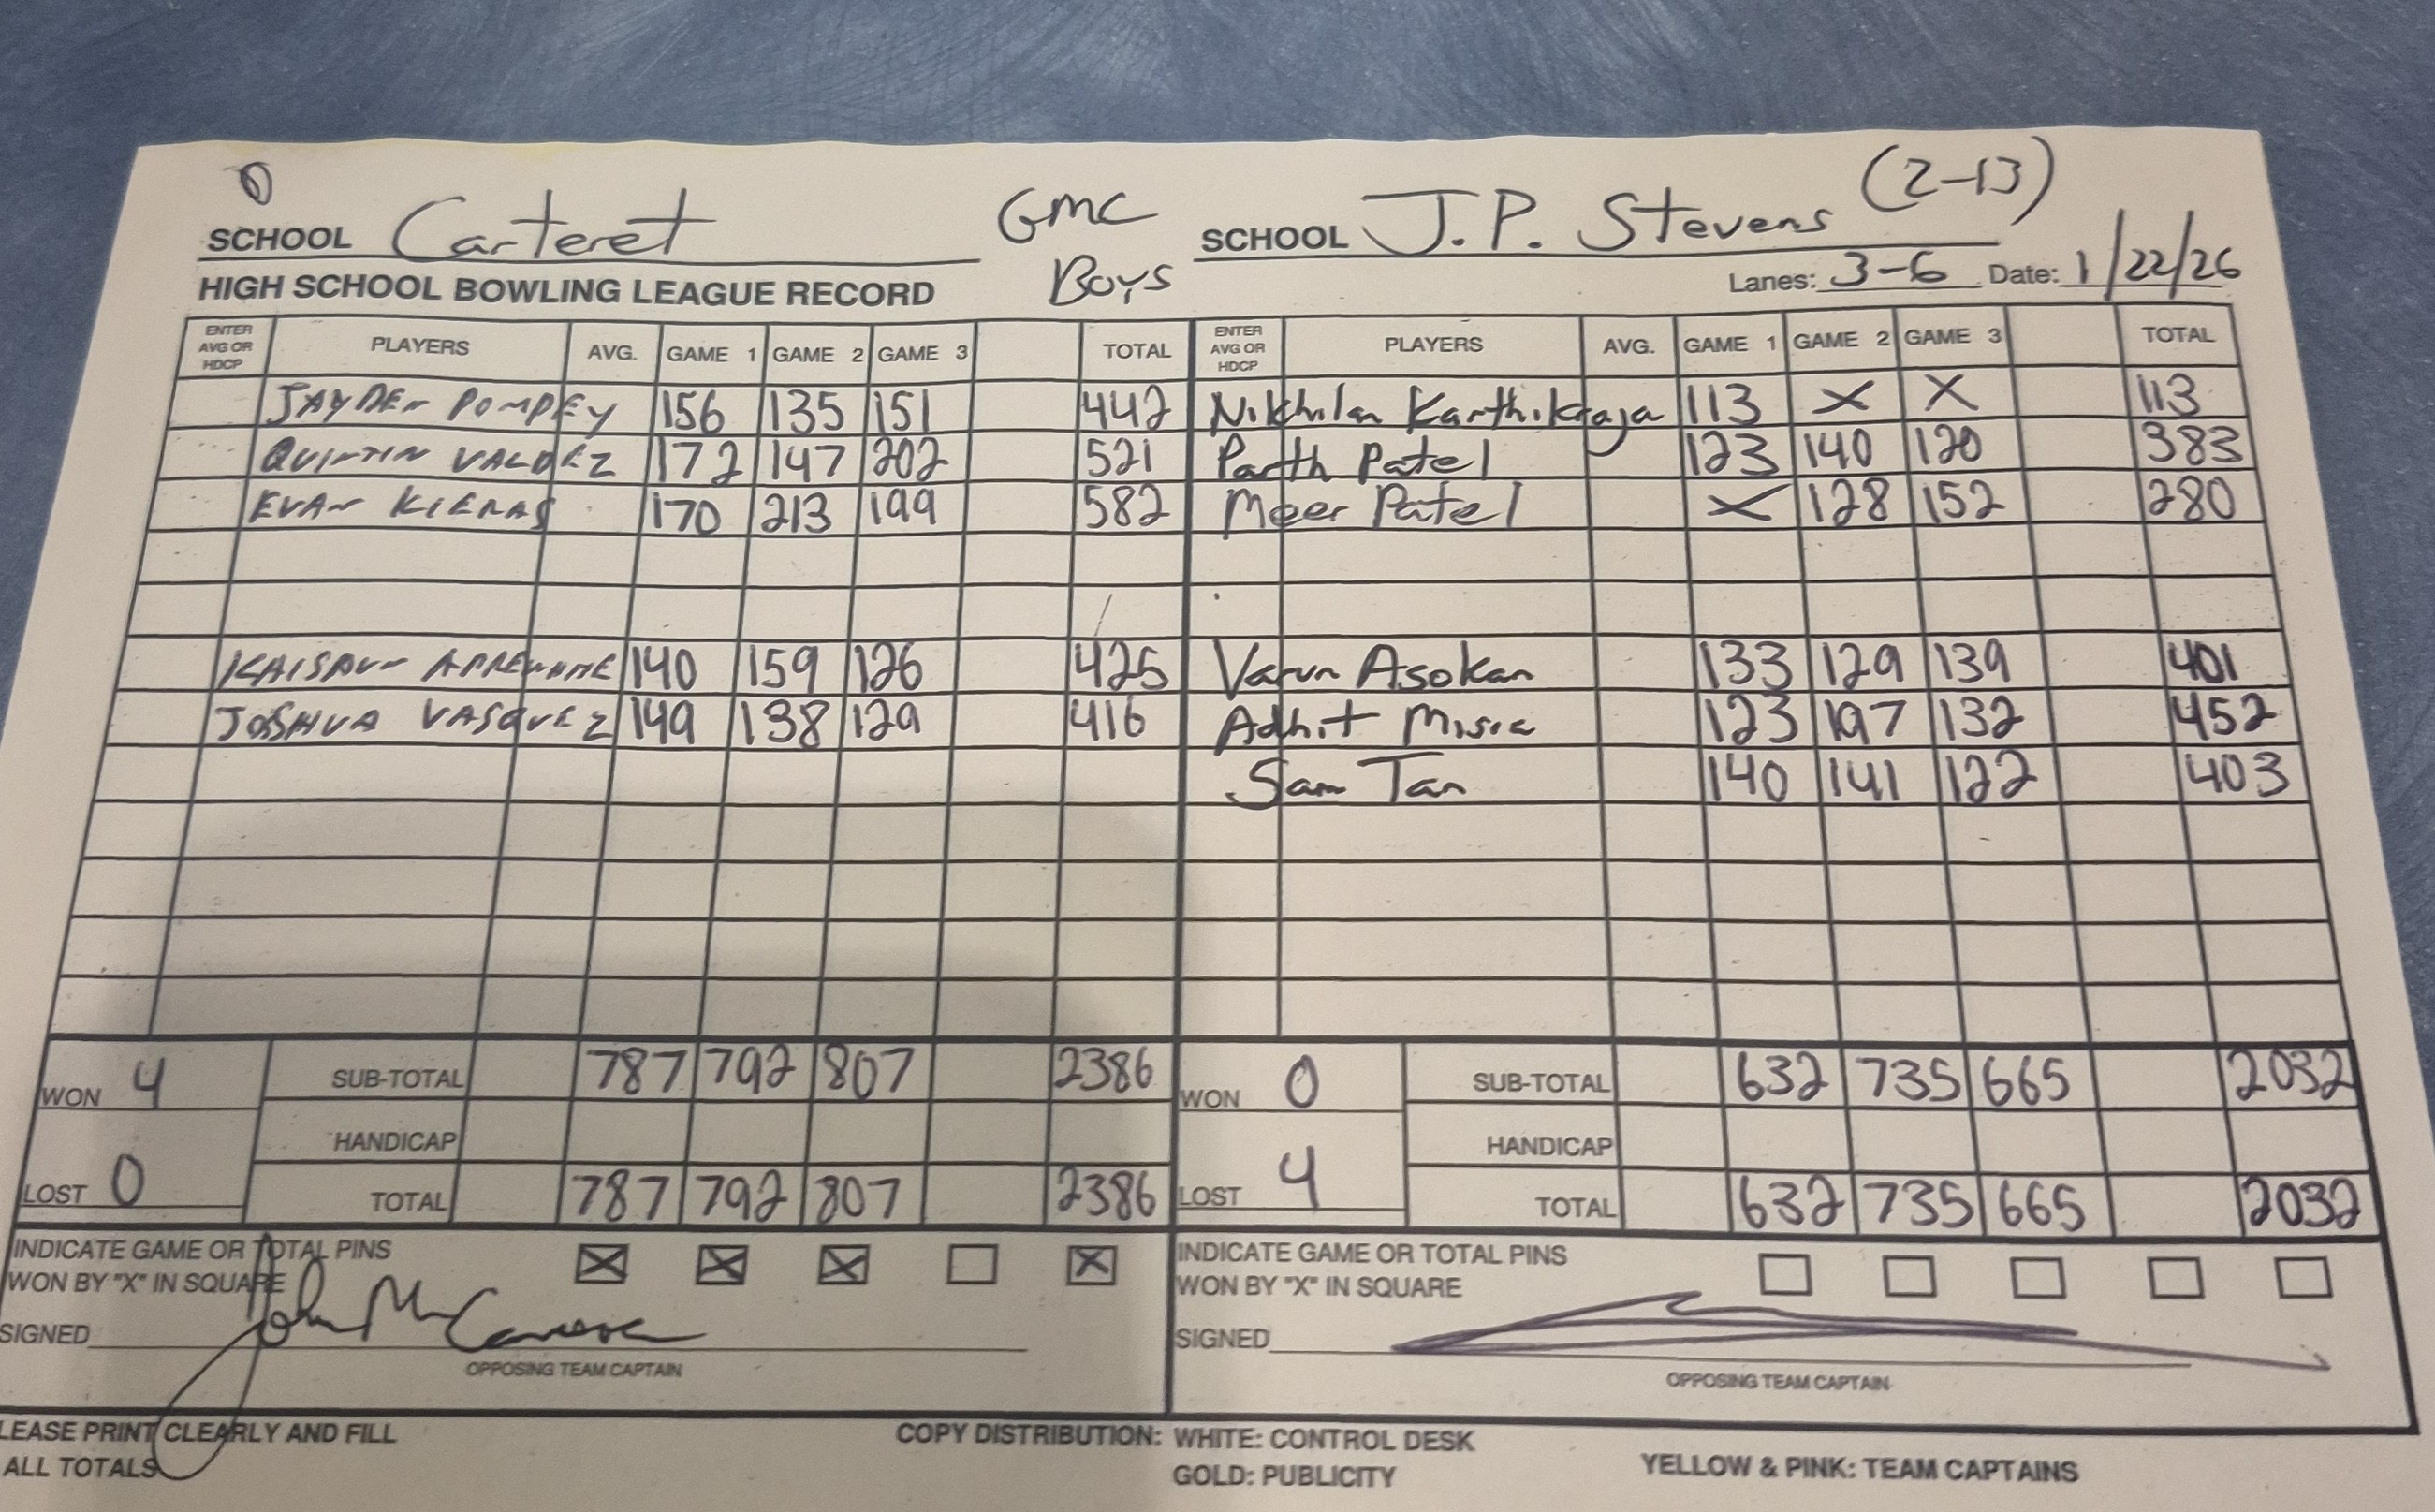 0
SCHOOL Carteret GMC SCHOOL J.P. Stevens (2-13)
HIGH SCHOOL BOWLING LEAGUE RECORD Boys Lanes: 3-6 Date: 1/22/26
ENTER AVG OR HDCP PLAYERS AVG. GAME 1 GAME 2 GAME 3 TOTAL ENTER AVG OR HDCP PLAYERS AVG. GAME 1 GAME 2 GAME 3 TOTAL
JAYDEN POMPEY 156 135 151 442 Nikhilan Karthikraja 113 X X 113
QUINTIN VALDEZ 172 147 202 521 Parth Patel 123 140 120 383
EVAN KIERAS 170 213 199 582 Meer Patel X 128 152 280
140 159 126 425 Varun Asokan 133 129 139 401
JOSHUA VASQUEZ 149 138 129 416 Adhit Misra 123 197 132 452
Sam Tan 140 141 122 403
WON 4 SUB-TOTAL 787 792 807 2386 WON 0 SUB-TOTAL 632 735 665 2032
HANDICAP HANDICAP
LOST 0 TOTAL 787 792 807 2386 LOST 4 TOTAL 632 735 665 2032
INDICATE GAME OR TOTAL PINS INDICATE GAME OR TOTAL PINS
WON BY "X" IN SQUARE X X X X WON BY "X" IN SQUARE
SIGNED John SIGNED
OPPOSING TEAM CAPTAIN OPPOSING TEAM CAPTAIN
LEASE PRINT CLEARLY AND FILL COPY DISTRIBUTION: WHITE: CONTROL DESK
ALL TOTALS GOLD: PUBLICITY YELLOW & PINK: TEAM CAPTAINS